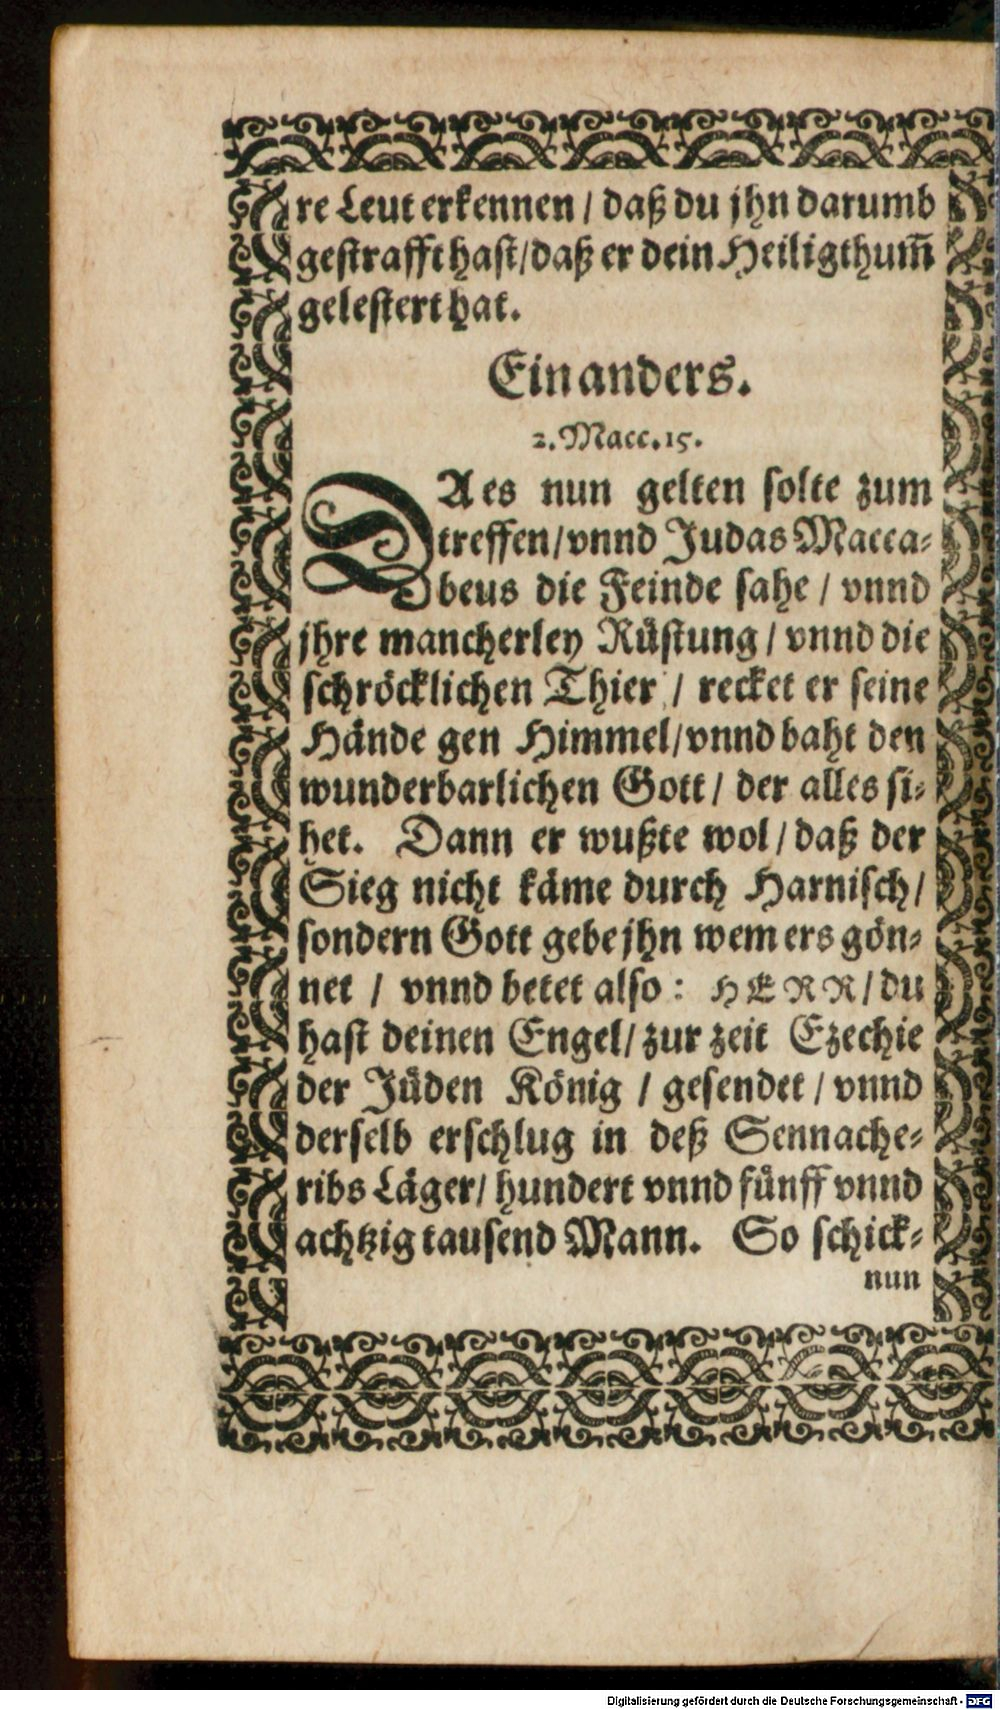 re Leut erkennen / daß du jhn darumb
gestrafft hast/daß er dein Heiligthum̃
gelestert hat.
Ein anders.
2. Macc. 15.
DA es nun gelten solte zum
treffen/vnnd Judas Macca-
beus die Feinde sahe / vnnd
jhre mancherley Rüstung / vnnd die
schröcklichen Thier / recket er seine
Hände gen Himmel/vnnd baht den
wunderbarlichen Gott / der alles si-
het. Dann er wußte wol / daß der
Sieg nicht käme durch Harnisch/
sondern Gott gebe jhn wem ers gön-
net / vnnd betet also: HERR/ du
hast deinen Engel/ zur zeit Ezechie
der Jüden König / gesendet / vnnd
derselb erschlug in deß Sennache-
ribs Läger/ hundert vnnd fünff vnnd
achtzig tausend Mann. So schick-
nun
Digitalisierung gefördert durch die Deutsche Forschungsgemeinschaft - DFG